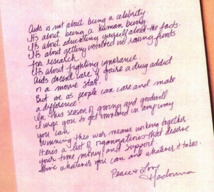 Aids is not about being a celebrity
It's about being a human being
It's about educating yourself about the facts.
It's about getting involved in raising funds
for research.
It's about fighting ignorance
Aids doesn't care if you're a drug addict
or a movie star.
But as a people can care and make
a difference.
In this season of giving and goodwill
I urge you to get involved in any way
you can
Winning this war means working together
Here's a list of organizations that deserve
your time money and support
Give whatever you can and whatever it takes.
Peace & love
Madonna